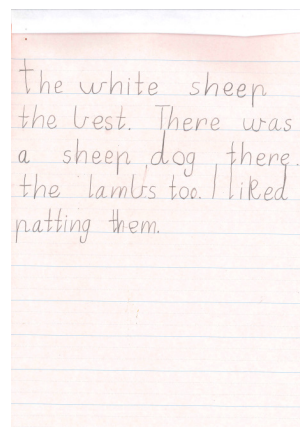 the white sheep
the best. There was
a sheep dog there.
the lambs too. I liked
patting them.